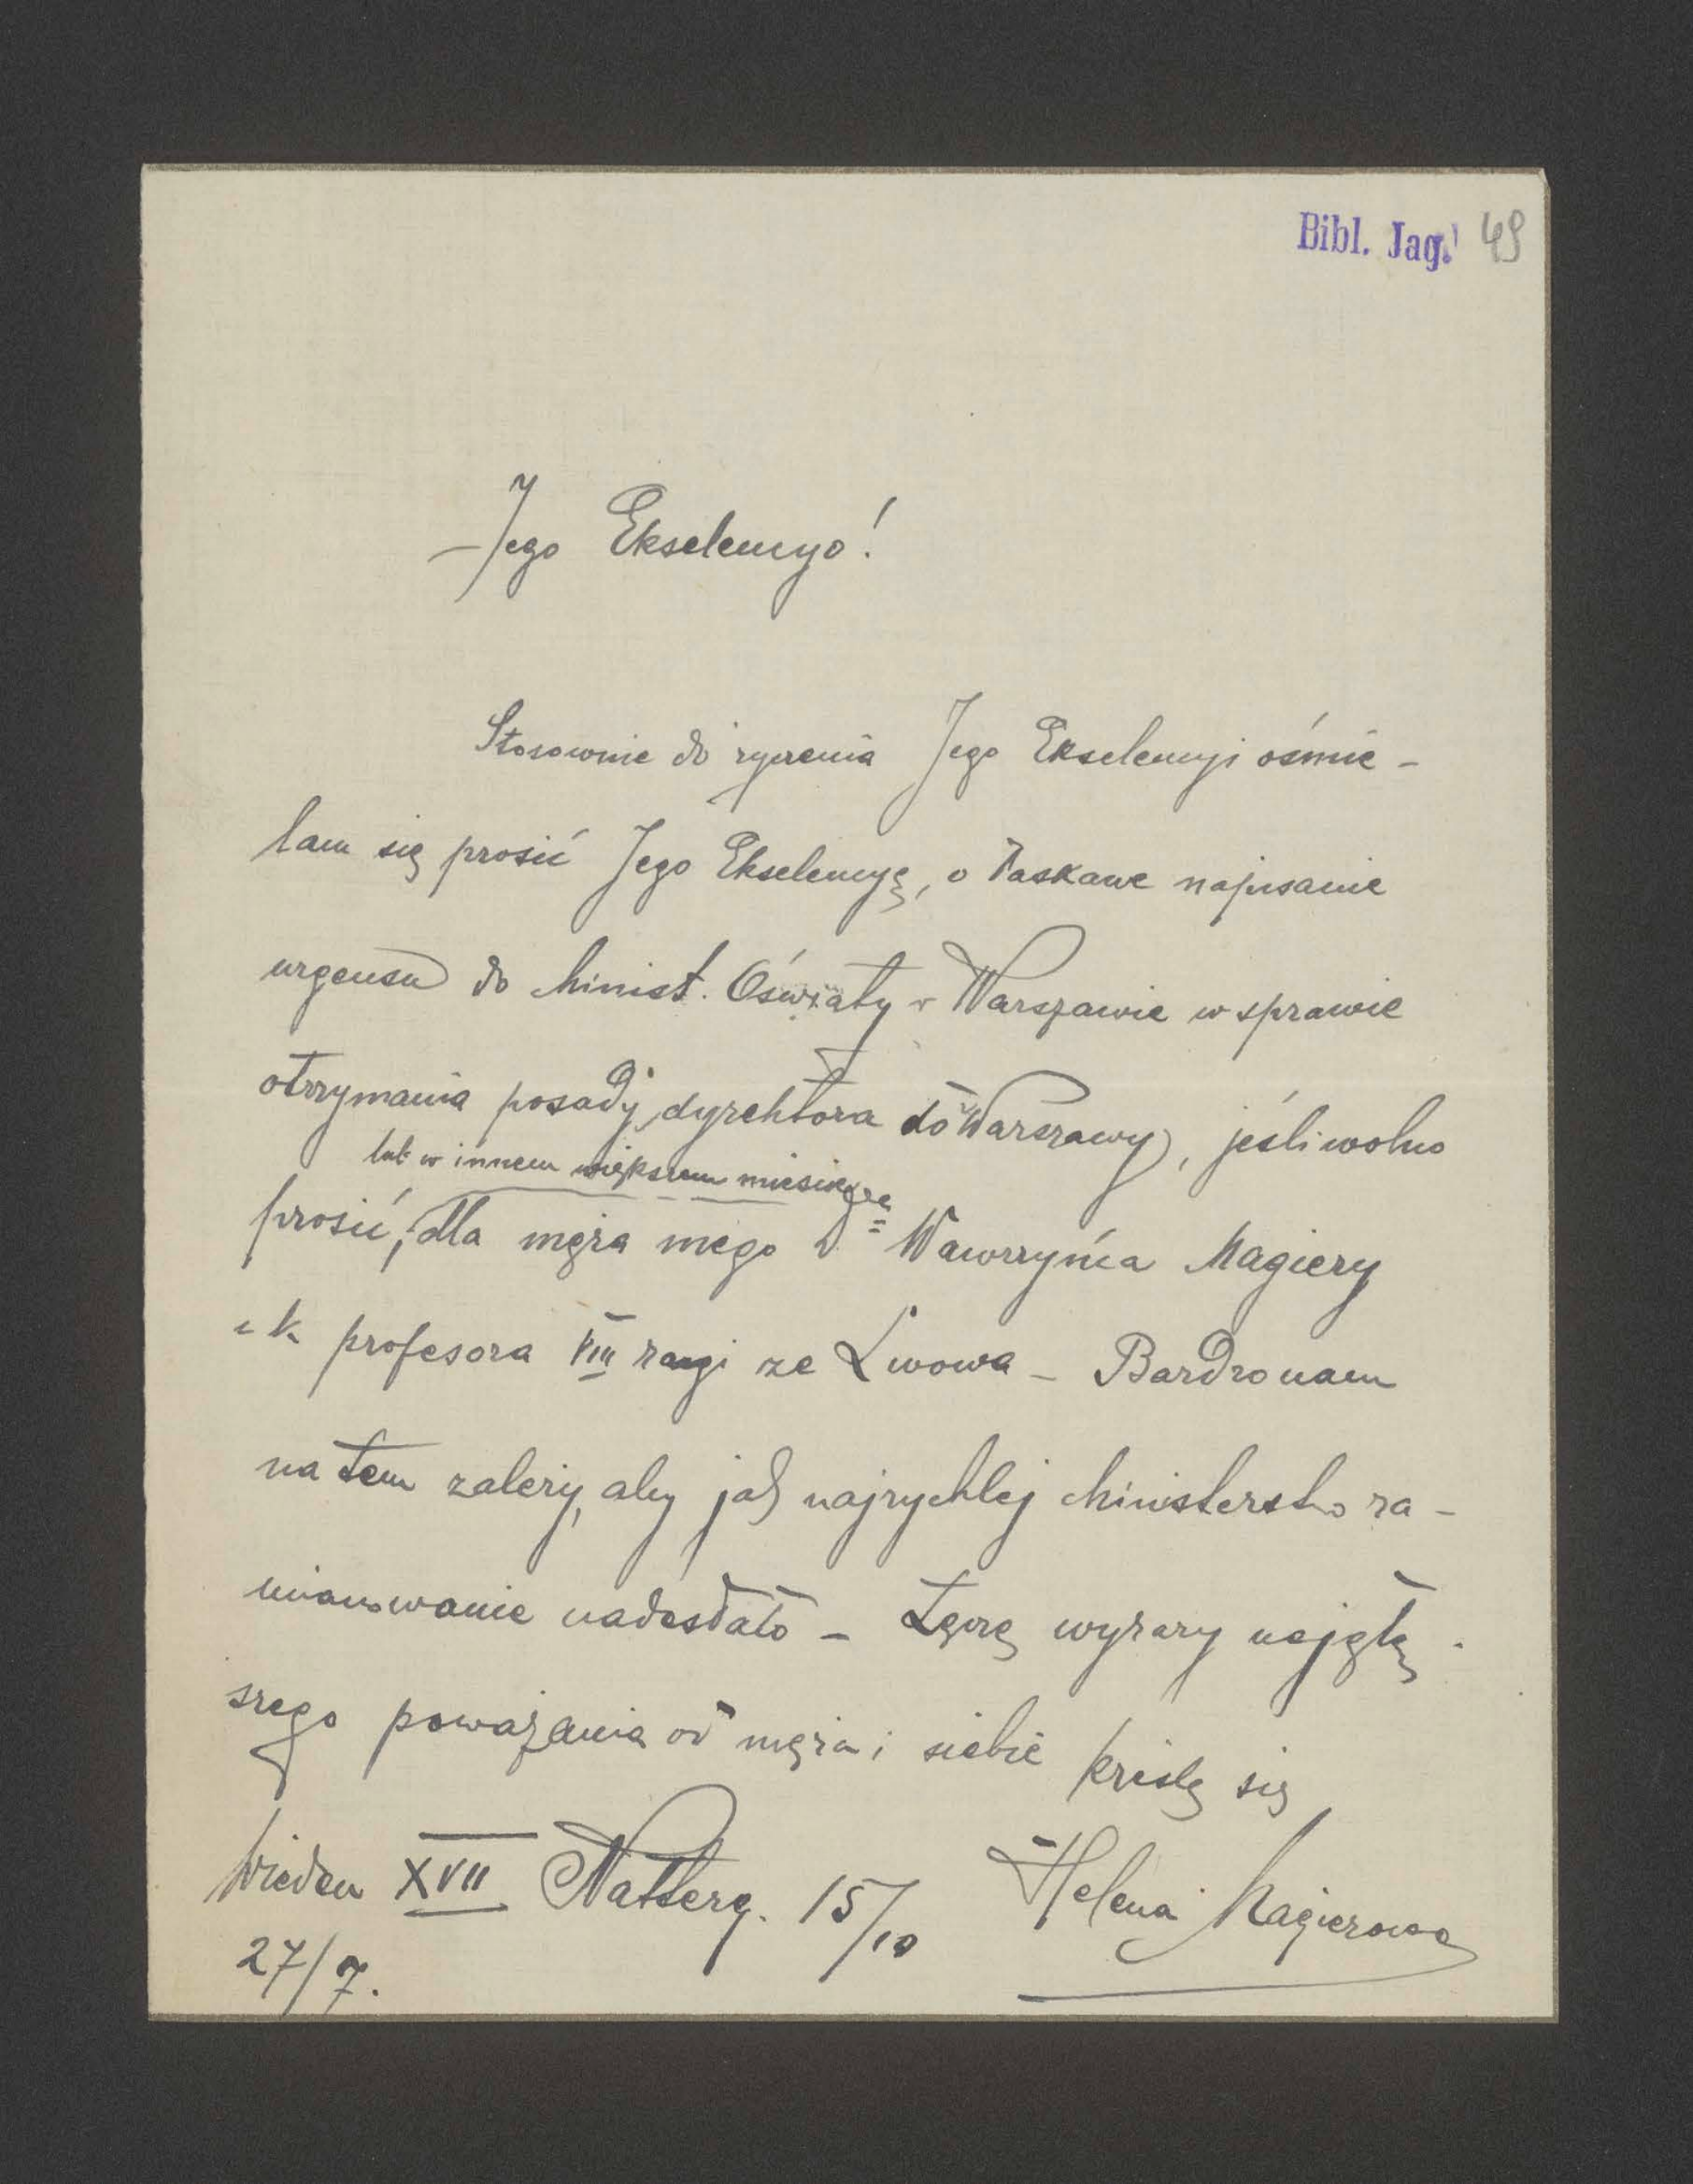 Bibl. Jag. 49
Jego Ekselencyo!
Stosownie do życzenia Jego Ekselencyi ośmie-
lam się prosić Jego Ekselencyę, o łaskawe napisanie
urgensu do Minist. Oświaty w Warszawie w sprawie
otrzymania posady dyrektora do Warszawy, jeśli wolno
lub w innem większem mieście
prosić, dla męża mego Wawrzyńca Magiery
c k profesora VIII rangi ze Lwowa – Bardzo nam
na tem zależy, aby jak najrychlej Ministerstwo za-
mianowanie nadesłało – Łączę wyrazy
szego poważania od męża i siebie kreślę się
Wiedeń XVII 15/10 Helena Magierowa
27/7.